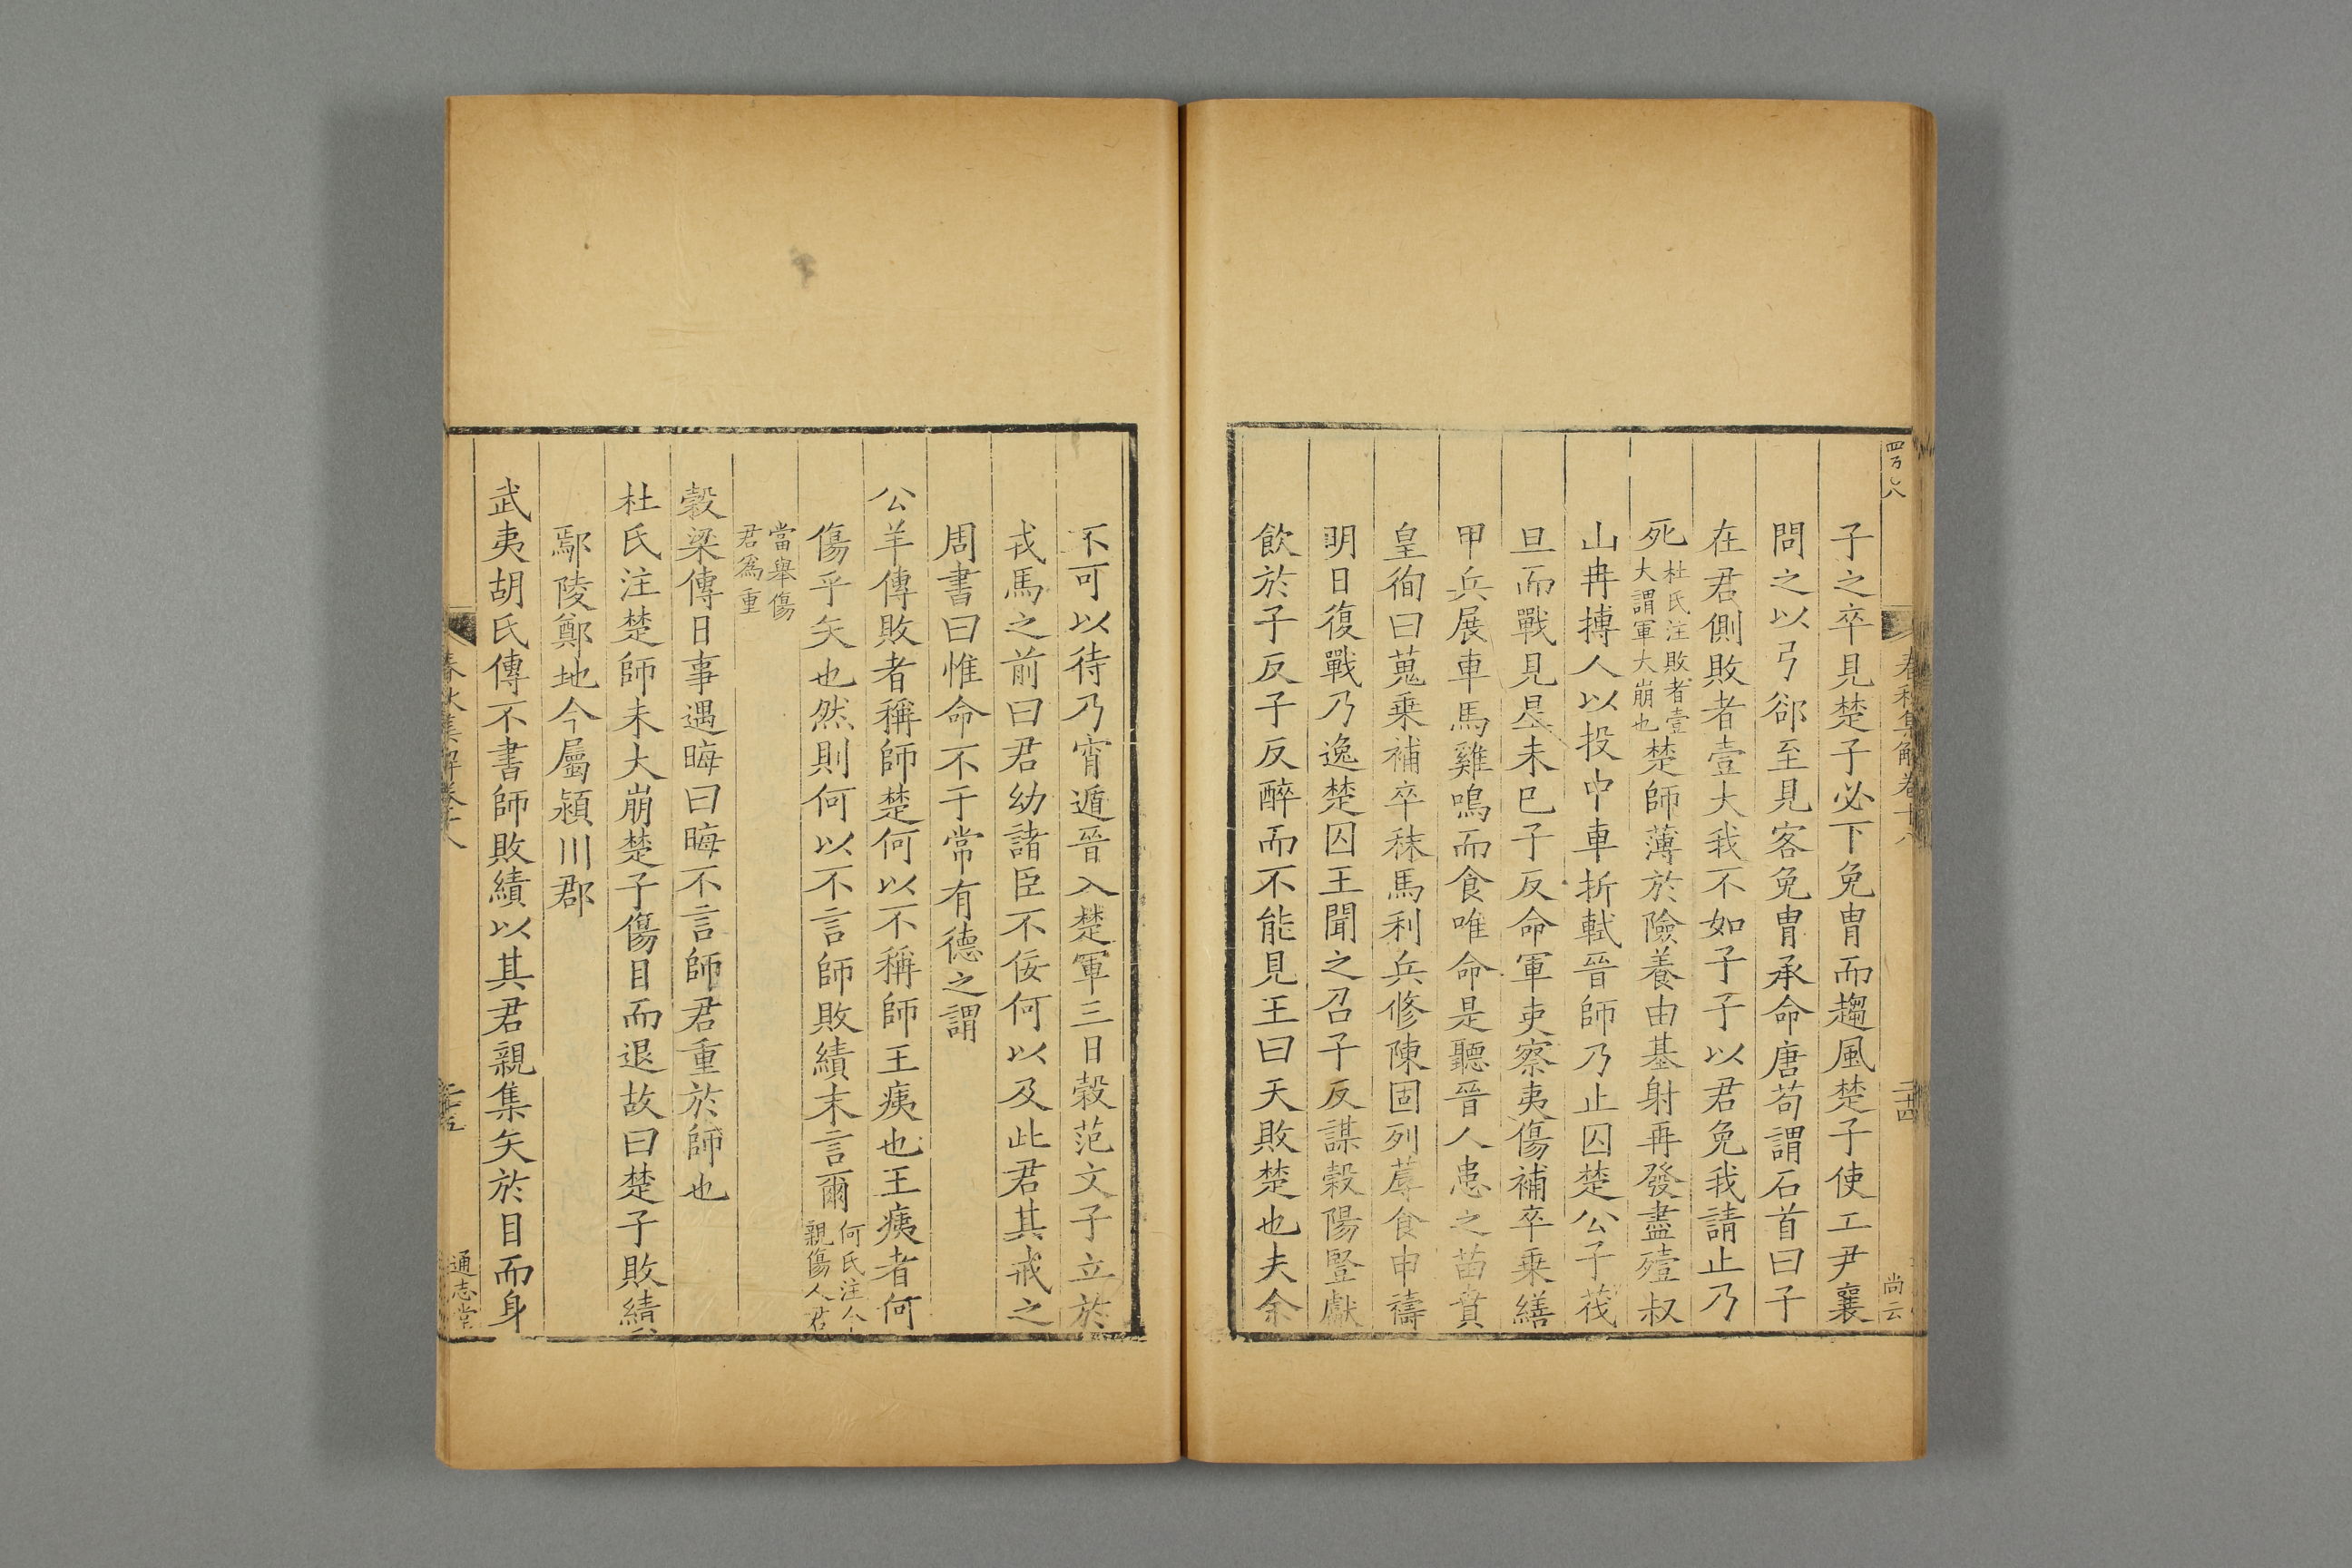 春秋集解卷十八
二十四
尚云
子之卒見楚子必下免胄而趨風楚子使工尹襄
問之以弓郤至見客免胄承命唐苟謂石首曰子
在君側敗者壹大我不如子子以君免我請止乃
死杜氏注敗者壹大謂軍大崩也楚師薄於險養由基射再發盡殪叔
山冉搏人以投中車折軾晉師乃止囚楚公子茷
旦而戰見星未巳子反命軍吏察夷傷補卒乗繕
甲兵展車馬雞鳴而食唯命是聽晉人患之苗賁
皇徇曰蒐乗補卒秣馬利兵修陳固列蓐食申禱
明日復戰乃逸楚囚王聞之召子反謀穀陽豎獻
飲於子反子反醉而不能見王曰天敗楚也夫余
不可以待乃宵遁晉入楚軍三日穀范文子立於
戎馬之前曰君幼諸臣不佞何以及此君其戒之
周書曰惟命不于常有德之謂
公羊傳敗者稱師楚何以不稱師王痍也王痍者何
傷乎矢也然則何以不言師敗績末言爾何氏注今親傷人君
當舉傷君爲重
穀梁傳日事遇晦曰晦不言師君重於師也
杜氏注楚師未大崩楚子傷目而退故曰楚子敗績
鄢陵鄭地今屬潁川郡
武夷胡氏傳不書師敗績以其君親集矢於目而身
春秋集解卷十八
二十五
通志堂